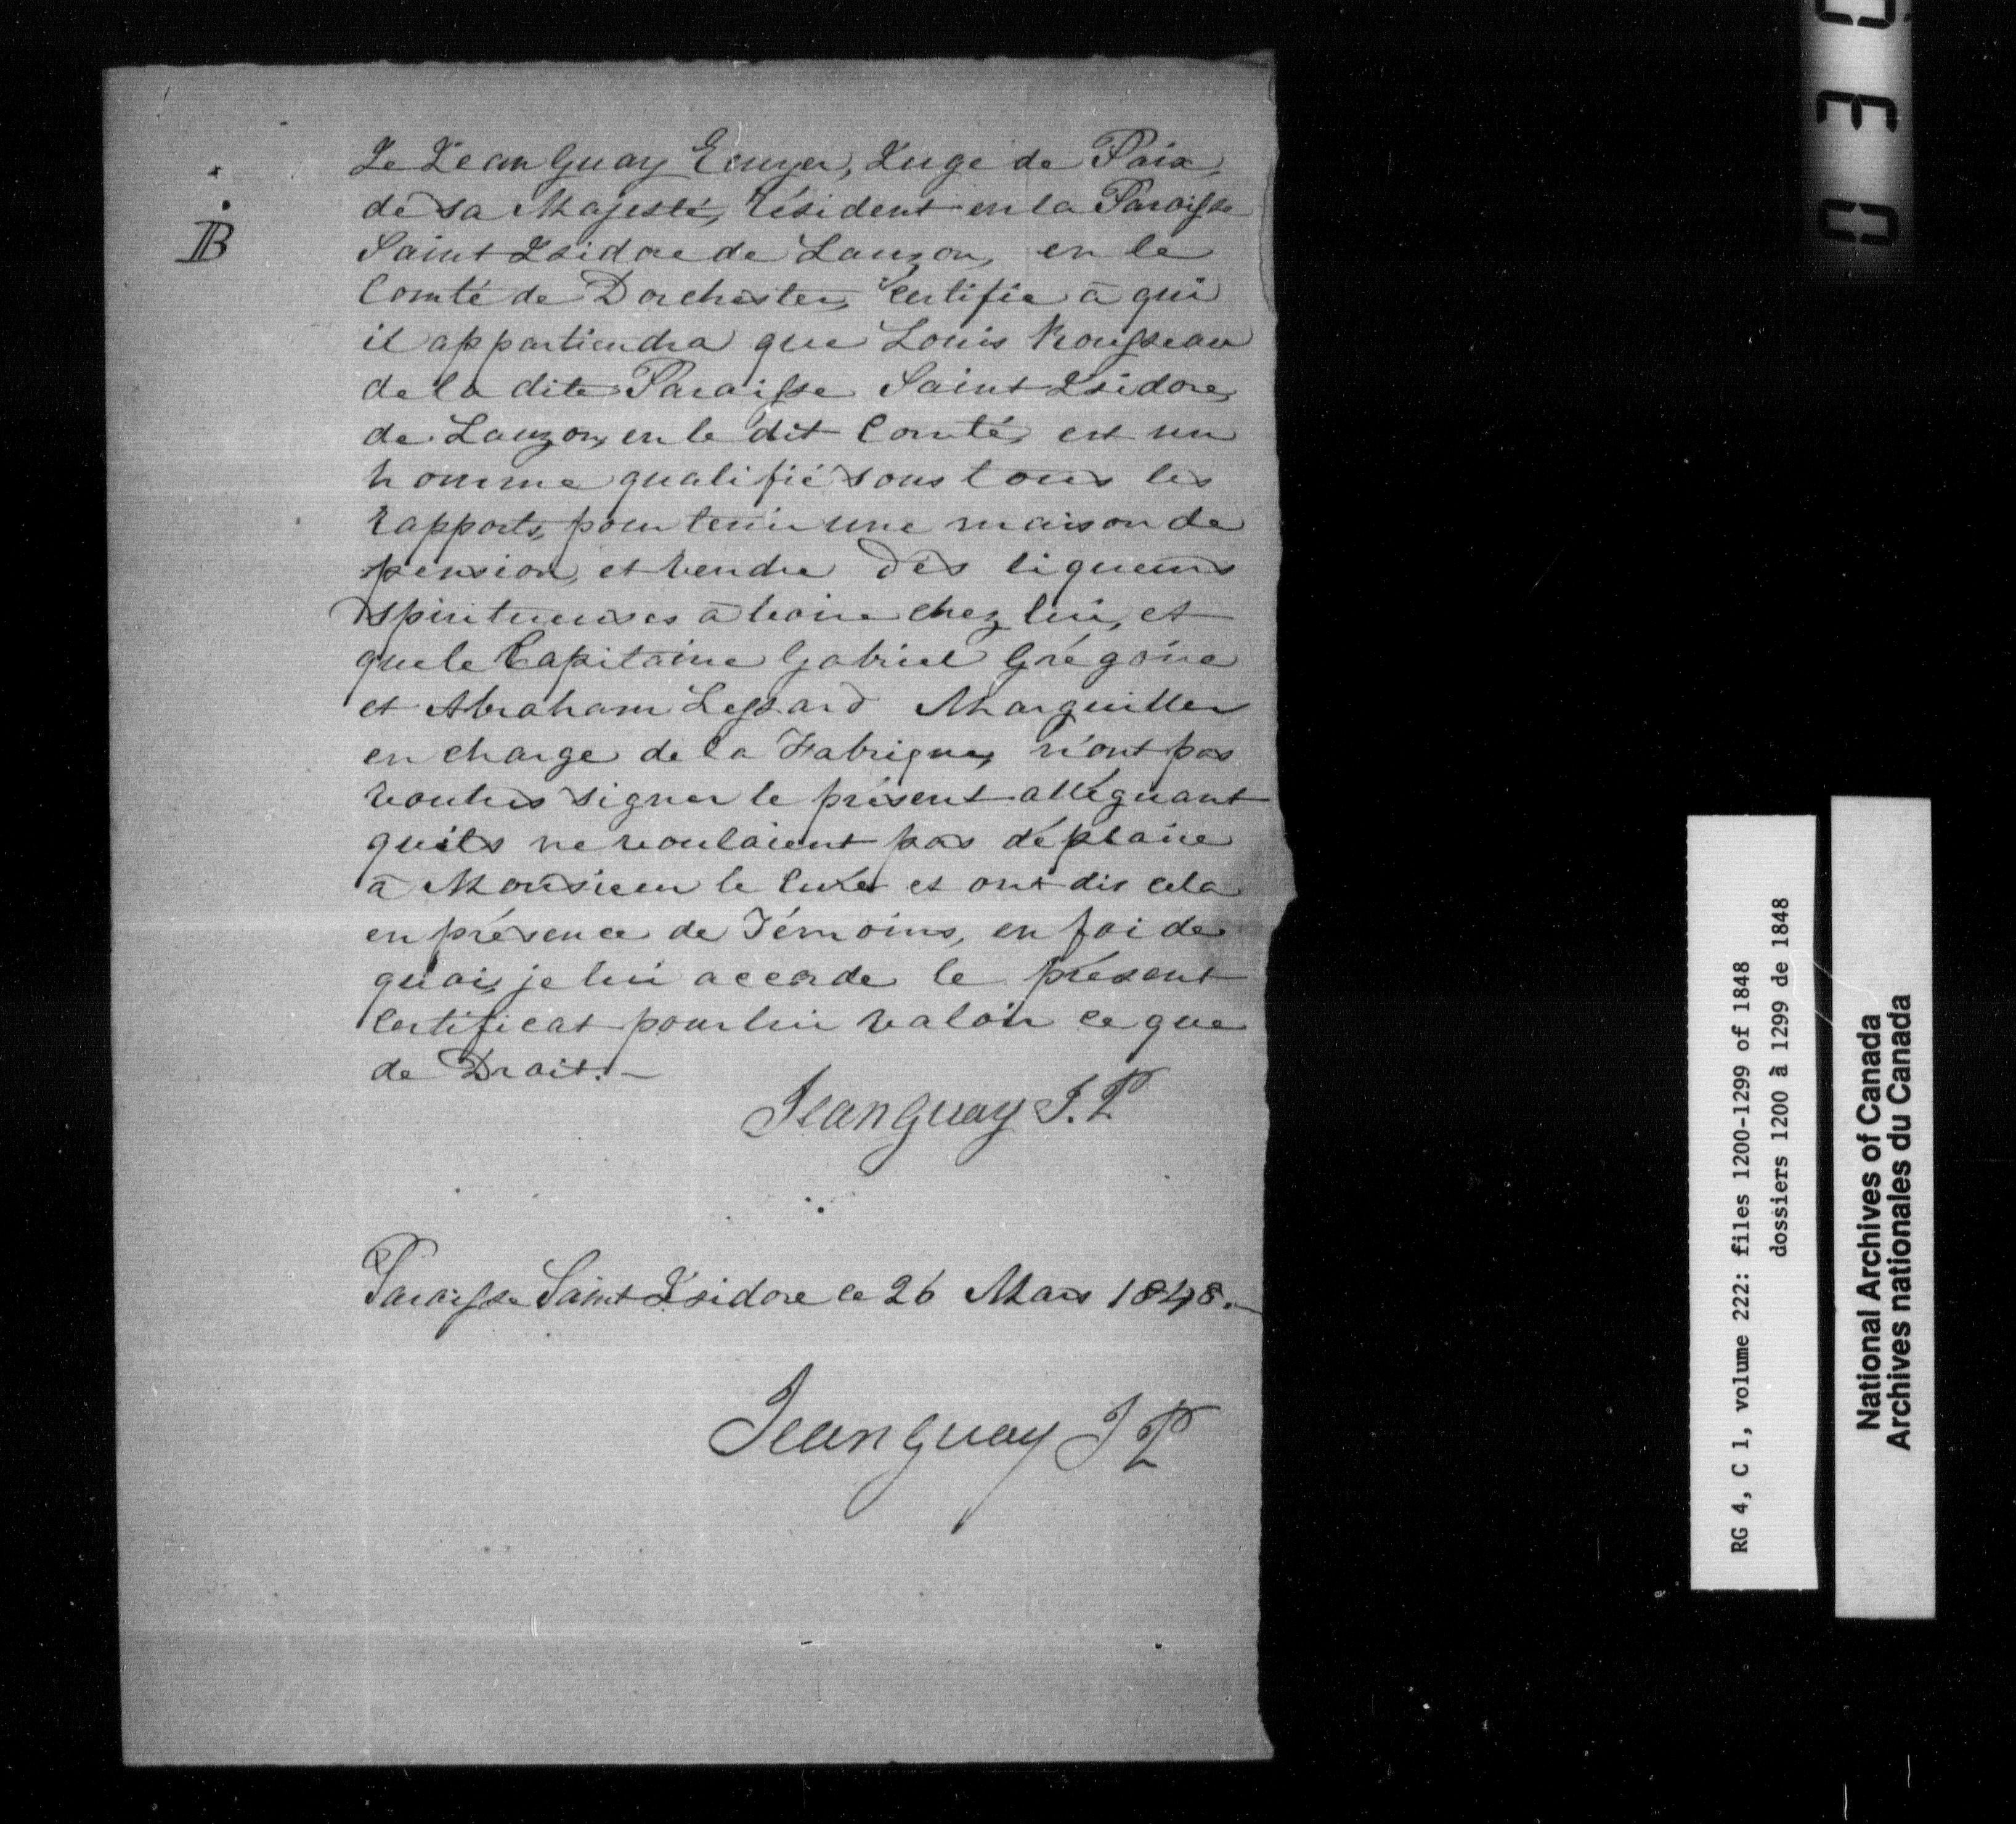 B
Je Jean Guay Ecuyer, Juge de Paix,
de sa Majesté, résident en la Paroisse
Saint Isidore de Lauzon, en le
Comté de Dorchester, Certifie à qui
il appartiendra que Louis Rousseau
de la dite Paroisse Saint Isidore,
de Lauzon, en le dit Comté, est un
homme qualifié sous tous les
rapports, pour tenir une maison de
pension, et vendre des liqueurs
spiritueuses à boire chez lui, et
que le Capitaine Gabriel Grégoire
et Abraham Lessard Marguiller
en charge de la Fabrique, n'ont pas
voulus signer le présent alléguant
quils ne voulaient pas déplaire
à Monsieur le Curé et ont dis cela
en présence de Témoins, en foi de
quoi, je lui accorde le présent
Certificat pour lui valoir ce que
de Droit. —
Jean Guay J. P
Paroisse Saint Isidore ce 26 Mars 1848. —
Jean Guay J P
030
RG 4, C 1, volume 222: files 1200-1299 of 1848
dossiers 1200 à 1299 de 1848
National Archives of Canada
Archives nationales du Canada